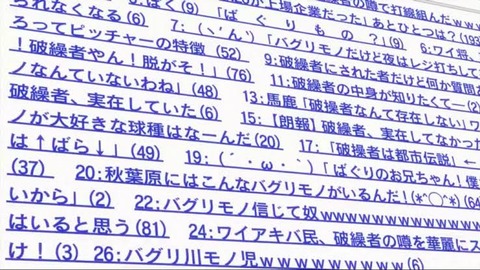 られなくなる(6) 6:ぼく(9) の噂で打線組んだwww
が上場企業だった」あとひとつは?(193)
ろってピッチャーの特徴 (52) 7:(ヽ'ん')「バグリモノだけど夜はレジ打ちして
「ばぐりもの?」(9) 6:ワイ将、
!破繰者やん!脱がそ!」(76) 9:破繰者にされた者だけど何か質問
モノなんていないわね」(48) 11:破繰者の中身が知りたくて―(2)
破繰者、実在していた(6) 13:馬鹿「破繰者なんて存在しない」ワ
ノが大好きな球種はなーんだ(20) 15:【朗報】破繰者、実在してなかっ
は↑ばら↓」(49) 17:「破繰者は都市伝説」←
(37) 19:(´・ω・`)「ばぐりのお兄ちゃん!僕
20:秋葉原にはこんなバグリモノがいるんだ!(*^○^*)(64
いから」(2) 22:バグリモノ信じて奴wwwwwwwwwwwwww
はいると思う(81) 24:ワイアキバ民、破繰者の噂を華麗にス
け!(3) 26:バグリ川モノ児wwwwwwwww(6)